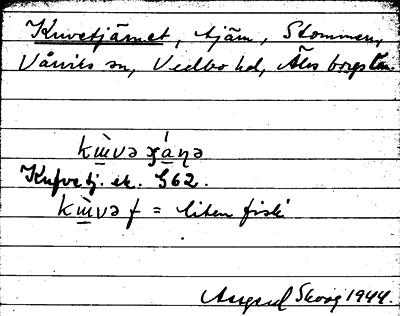 Kuvetjärnet, tjärn, Stommen,
Vårviks sn, Vedbo hd, Älvsborgs län.
kɯ̀və ʂáɳə
Kufvetj. ek. G62.
kɯ̀və f = liten fisk
Assar Skoog 1944.